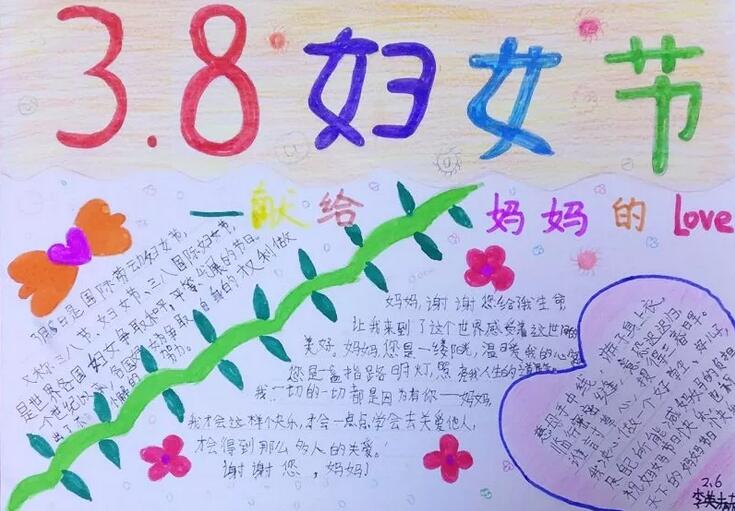 3.8妇女节
一献给妈妈的Love
3月8日是国际劳动妇女节,
又称三八节、妇女节、三八国际妇女节,
是世界各国妇女争取和平、平等、发展的节日。
一个世纪以来,各国妇女为争取自身的权利做
出了不懈的努力。
妈妈,谢谢您给我生命
让我来到了这个世界感受着这世间的
美好。妈妈,您是一缕阳光,温暖我的心窝
您是一盏指路明灯,照亮我人生的道路
我一切的一切都是因为有你——妈妈,
我才会这样个快乐,才会一点点学会去关爱他人,
才会得到那么多人的关爱。
谢谢您,妈妈!
慈母手中线,游子身上衣
临行密密缝,意恐迟迟归
谁言寸草心,报得三春晖。
我决心做一个好学生,好儿子,
祝妈妈节日快乐,也祝
天下的妈妈都快乐
2.6